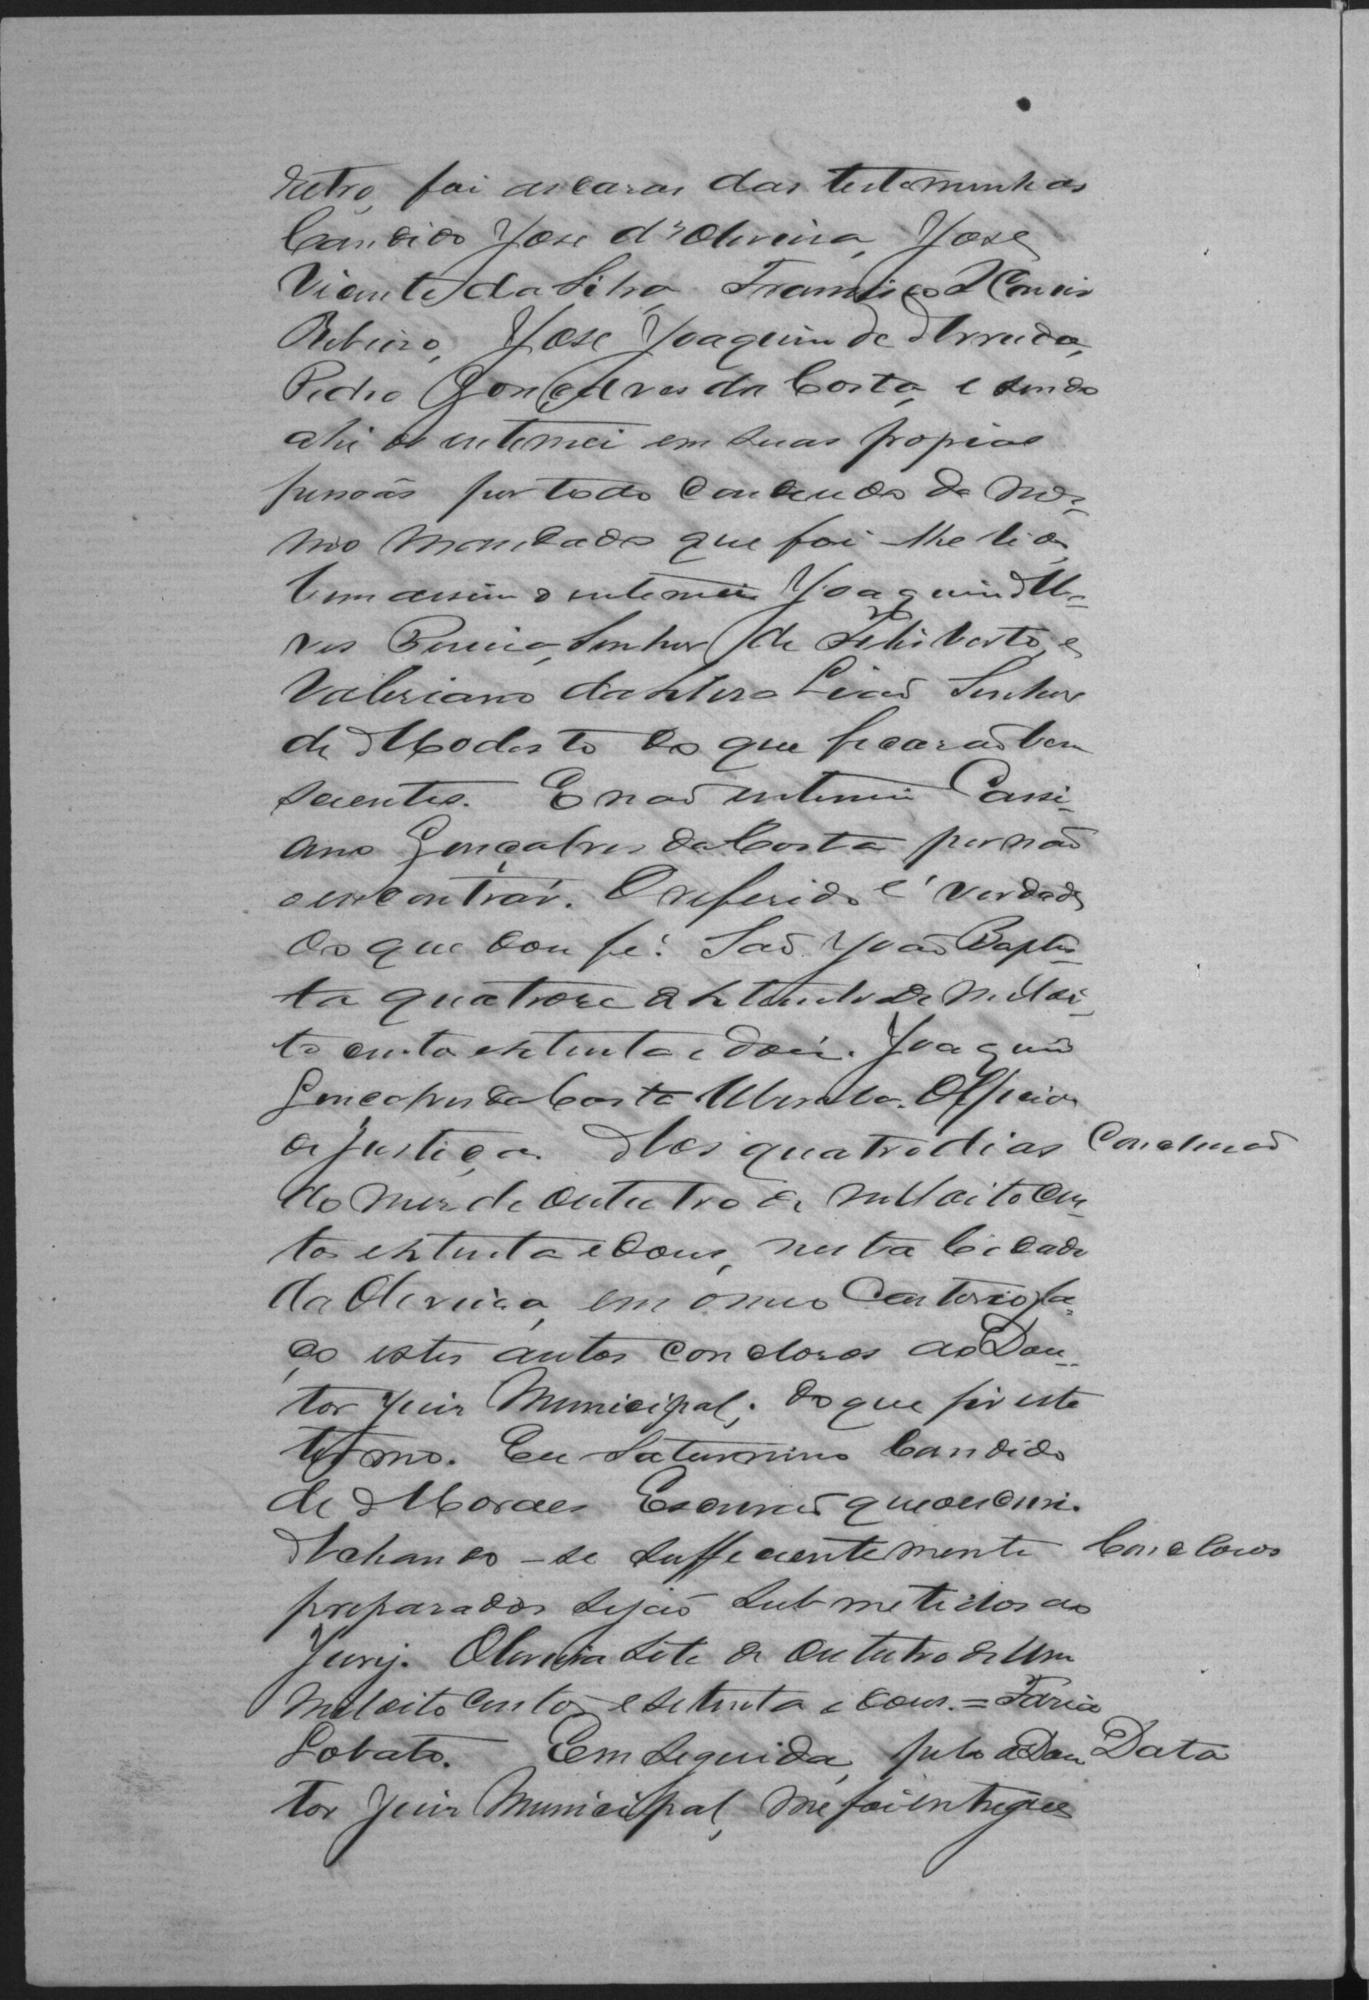 retro, fui as casas das testemunhas
Candido Jose d'Oliveira, Jose
Vicente da Silva Francisco
Ribeiro, Jose Joaquim de Arruda,
Pedro Gonçalves da Costa, e sendo
ahi os entemei em suas propias
pessoas por todo contendo do mes-
mo mandado que foi lhe lido,
bem assim o entemei Joaquim Al-
ves Pereira, Senhor de Feliberto, e
Valeriano da Leão Senhor
de Modesto do que ficarão bem
scientes. E não entemei Cassi-
ano Gonçalves da Costa por não
o encontrar. O referido é verdade
do que dou fé. São João Baptis-
ta quatorze de Setembro de mil oi-
to centos e setenta e dois. Joaquim
Gonçalves da Costa Official
de Justiça. Aos quatro dias Conclusão
do mez de Outubro de mil oito cen-
tos e setenta e dous, nesta Cidade
da Oliveira, em o meo Cartorio fa-
ço estes autos concloses ao Dou-
tor Juiz Municipal; do que fiz este
termo. Eu Saturnino Candido
de Moraes Escrivão que o escrevi.
Achando-se sufficientemente Concloses
preparados sejão submetidos ao
Jury. Oliveira sete de Outubro de Um
mil oito centos e setenta e dous. = Faria
Lobato. Em seguida, pelo Dou Data
tor Juiz Municipal, me foi entregue